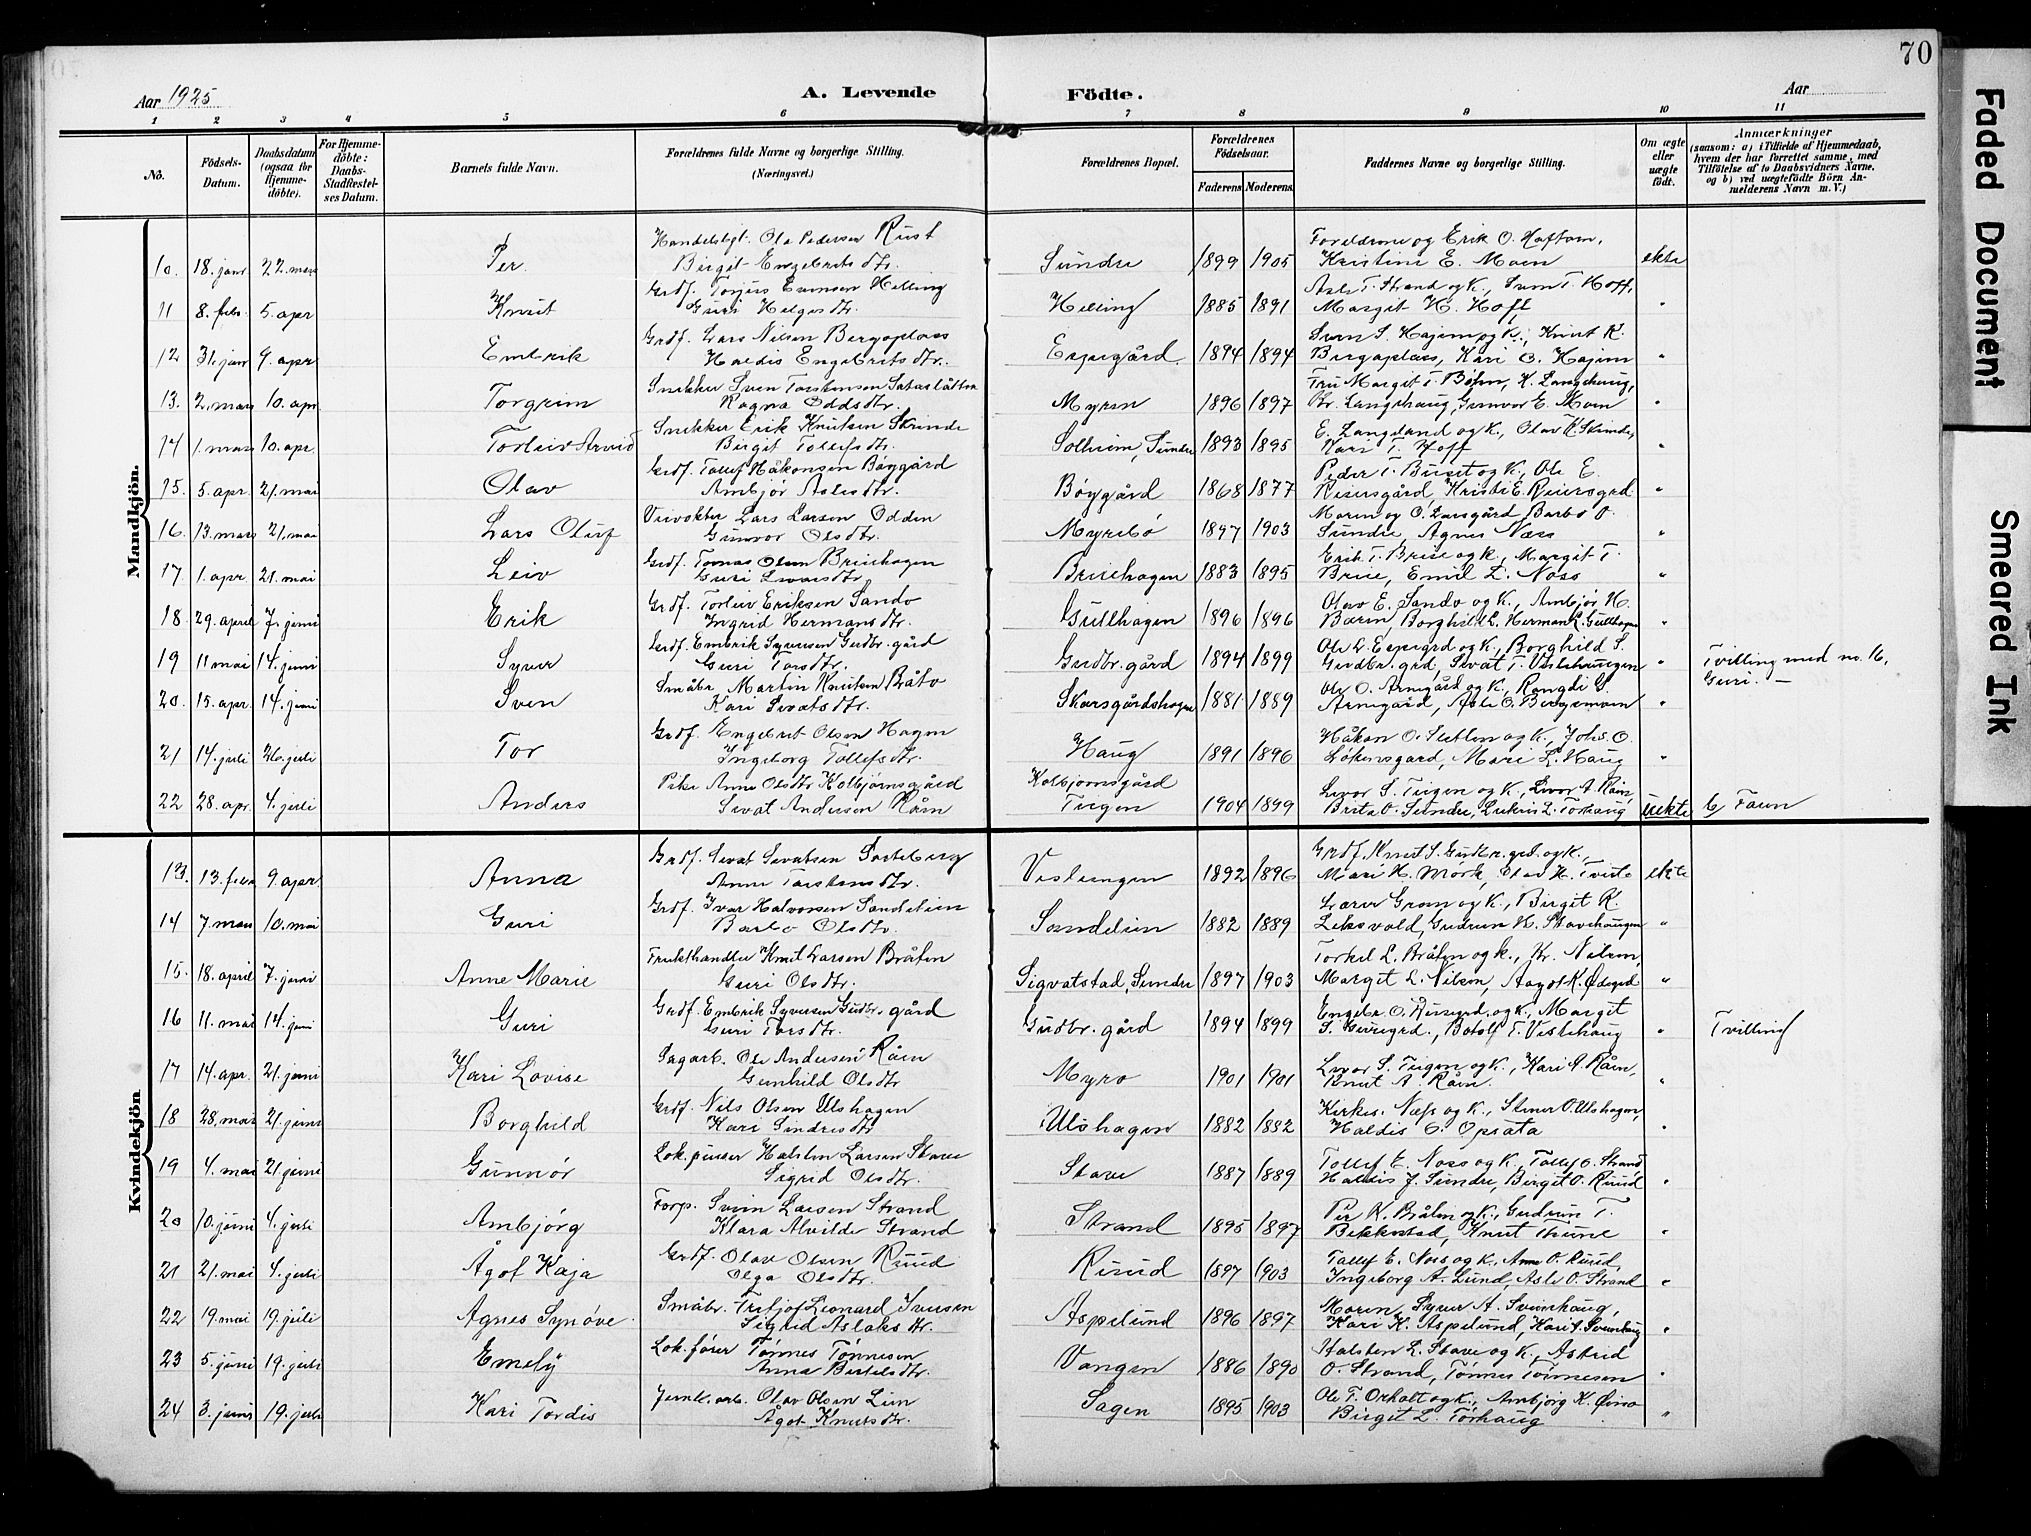 70
Aar 1925
A. Levende
Födte.
Aar
1 2 3 4 5 6 7 8 9 10 11
No.
Födsels-Datum.
Daabsdatum (ogsaa for Hjemme-döbte).
For Hjemme-döbte: Daabs-Stadfæstel-ses Datum.
Barnets fulde Navn.
Forældrenes fulde Navne og borgerlige Stilling. (Næringsvei.)
Forældrenes Bopæl.
Forældrenes Födselsaar.
Faderens Moderens
Faddernes Navne og borgerlige Stilling.
Om ægte eller uægte födt.
Anmærkninger (saasom: a) i Tilfælde af Hjemmedaab, hvem der har forrettet samme, med Tilföielse af to Daabsvidners Navne, og b) ved uægtefödte Börn An-melderens Navn m. V.)
Mandkjön.
10. 18. janr 22. mars Per Handelsbgt. Ola Pedersen Rust Birgit Engebritsdtr. Sundre 1899 1905 Foreldrene og Erik O. Haftorn, Kristine E. Moen ekte
11 8. febr. 5. apr Knut Grdf. Torjus Svensen Helling Guri Helgesdtr. Helling 1885 1891 Asle T. Strand og k., Sven T. Hoff, Margit H. Hoff "
12 31. jan 9. apr Embrik Grdf. Lars Nilsen Bergaplass Haldis Engebritsdtr. Espegård 1894 1894 Sven S. Hagen og k., Knut K. Bergaplass, Kari O. Hagen "
13. 2. mars 10. apr Torgrim Snikker Sven Torstensen Sataslåtten Ragna Oddsdtr. Myren 1896 1897 Fru Margit T. Böhn, K. Langehaug, Br. Langehaug, Gunvor E. Moen "
14 1. mars 10. apr. Torleiv Arvid Snikker Erik Knutsen Skrinde Birgit Tollefsdtr. Solheim, Sundre 1893 1895 E. Langeland og k., Olav K. Skrinde, Kari T. Hoff "
15. 5. apr. 21. mai Olav Grdf. Tollef Håkonsen Böygård Ambjör Aslesdtr. Böygård 1868 1877 Peder T. Buset og k., Ole E. Reiersgård, Kristi E. Reiersgrd "
16. 13. mars 21. mai Lars Oluf Veivokter Lars Larsen Odden Gunvor Olsdtr. Myrebö 1897 1903 Moren og O. Larsgård, Barbo O. Sundre, Agnes Næss "
17 1. apr. 21. mai Leiv Grdf. Tomas Olsen Briehagen Guri Ivarsdtr. Briehagen 1883 1895 Erik T. Brie og k., Margit T. Brie, Emil L. Noss "
18 29. april 7. juni Erik Grdf. Torleiv Eriksen Sando Ingrid Hermansdtr. Gullhagen 1896 1896 Olav E. Sando og K., Ambjör H. Bærin, Borghild L. Herman K. Gullhagen "
19 11 mai 14. juni Syver Grdf. Embrik Syversen Gudbr. gård Guri Torsdtr. Gudbr. gård 1894 1899 Ole L. Espegrd og k., Borghild S. Gudbr. grd, Sevat T. Vestehaugen " Tvilling med no. 16, Guri. —
20. 15. apr, 14. juni Sven Småbr Martin Knutsen Båto Kari Sevatsdtr. Skarsgårdshagen 1881 1889 Ole O. Arnegård og k., Rangdi G. Arnegård, Asle O. Bergsmoen "
21 14. juli 26. juli Tor Grdf. Engebret Olsen Hagen Ingeborg Tollefsdtr. Haug 1891 1896 Håkon O. Sletten og k., Johs. O. Lökensgard, Mari L. Haug "
22 28. apr. 4. juli Anders Pike Anne Olsdtr Kolbjørnsgård Sevat Andersen Råen Kolbjørnsgård Tuigen 1904 1899 Livor S. Tuigen og K., Livor A. Råen, Brita O. Sundre, Lukris L. Torhaug uekte b/ Faren
Kvindekjön
13. 13. febr 9. apr. Anna Grdf. Sevat Sevatsen Sorteberg Anne Torstensdtr. Veslengen 1892 1896 Grdf. Knut S. Gudbr. grd. og k., Mari H. Mörk, Olav H. Tvisto ekte
14 7. mars 10. mai Guri Grdf. Ivar Halvorsen Sandelien Barbo Olsdtr. Sandelien 1882 1889 Lærer Gram og K., Birgit K. Leksvold, Gudrun H. Stavehaugen "
15. 18. april 7. juni Anne Marie Frukthandler Knut Larsen Bråten Guri Olsdtr. Sigvatstad, Sundre 1897 1903 Torkel L. Bråten og k., Kr. Nilsen, Margit L. Nilsen, Aagot K. Ødegrd "
16 11. mai 14. juni Guri Grdf. Embrik Syversen Gudbr. gård Guri Torsdtr. Gudbr. gård 1894 1899 Engebr. O. Ruesgrd. og k., Margit S. Guresgrd., Botolf T. Vestehaug " Tvilling
17 14. apr. 21. juni Kari Lovise Sagarb. Ole Andersen Råen Gunhild Olsdtr Myro 1901 1901 Livor S. Tuigen og K., Kari A. Råen, Knut A. Råen. "
18 28. mai 21. juni Borghild Grdf. Nils Olsen Ulshagen Kari Sindresdtr Ulshagen 1882 1882 Kirkes. Næss og k., Steiner O. Ulshagen, Haldis O. Opsata "
19 4. mai 21. juni Gunnör Lok.pusser Halsten Larsen Stave Sigrid Olsdtr. Stave 1887 1889 Tollef E. Noss og k., Tollef O. Strand Haldis J. Sundre, Birgit O. Ruud "
20 10. juni 4. juli Ambjörg Forp. Svein Larsen Strand Klara Alvilde Strand Strand 1895 1897 Per K. Bråten og k., Gudrun T. Bekkestad, Knut Thune "
21 21. mai 4. juli Ågot Kaja Grdf. Olav Olsen Ruud Olga Olsdtr. Ruud 1897 1903 Tollef E. Noss og k., Anne O. Ruud, Ingeborg A. Lund, Asle O. Strand "
22 19. mai 19. juli Agnes Synöve Småbr. Fritjof Leonard Iversen Sigrid Aslaksdtr. Aspelund 1896 1897 Moren, Syver A. Sveinhaug, Kari K. Aspelund, Kari S. Sveinhaug "
23 5. juni 19. juli Emely Lok.förer Tönnes Tönnesen Anna Bertelsdtr. Vangen 1886 1890 Halsten L. Stave og k., Astrid O. Strand, Tönnes Tönnesen "
24 3. juni 19. juli Kari Tordis Jernb.arb. Olav Olsen Lien Ågot Knutsdtr. Sagen 1895 1903 Ole T. Orholt og k., Ambjörg K. Öino Birgit L. Törhaug "
Faded Document
Smeared Ink